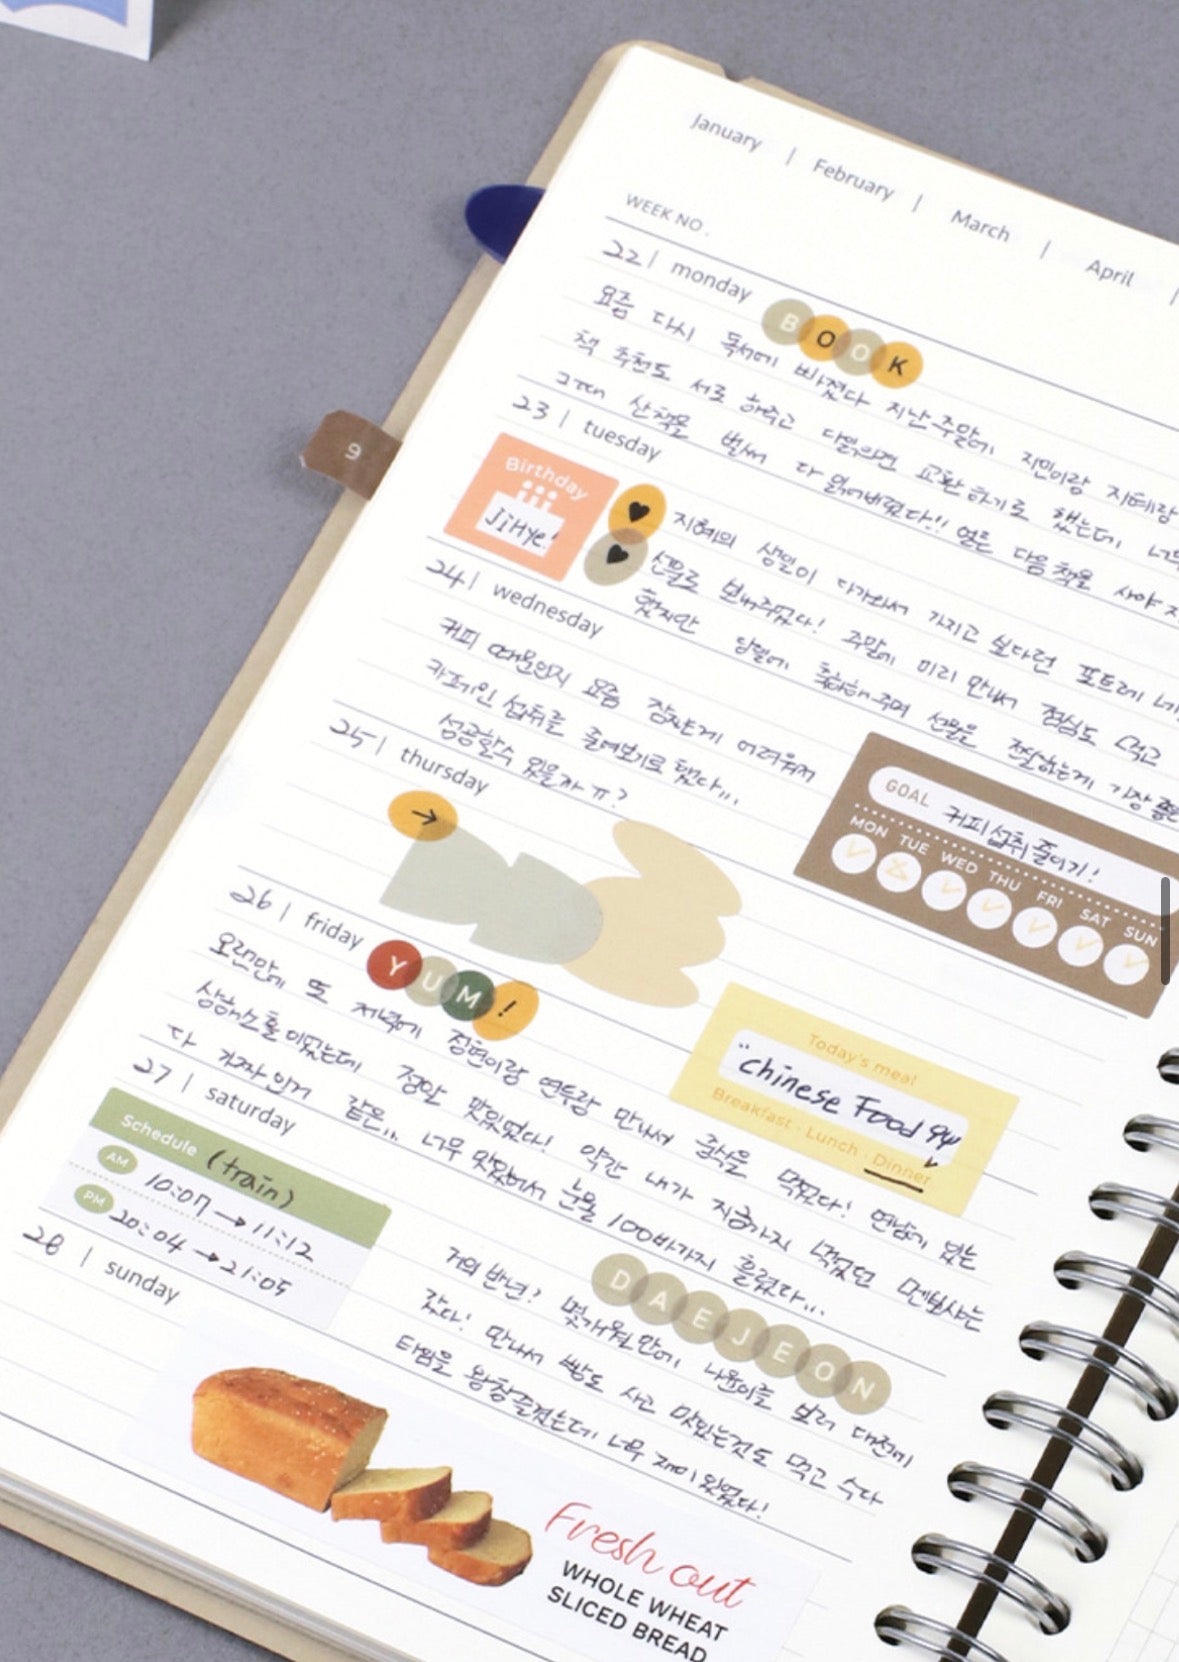 January | February | March | April |
WEEK NO.
22 | monday
BOOK
요즘 다시 독서에 빠졌다 지난 주말에 지민이랑 지혜랑
책 추천도 서로 해주고 다 읽으면 교환하기로 했는데, 너무
그때 산 책을 벌써 다 읽어버렸다!! 얼른 다음 책을 사야지
23 | tuesday
Birthday
JiHye!
지혜의 생일이 다가와서 가지고 싶다던 포트레
선물로 보내주었다! 주말에 미리 만나서 점심도 먹고
했지만 당일에 축하해주며 선물을 전달하는게 가장 좋은
24 | wednesday
커피 때문인지 요즘 잠자는게 어려워져
카페인 섭취를 줄여보기로 했다...
성공할수 있을까 ㅠ?
GOAL 커피 섭취 줄이기!
MON TUE WED THU FRI SAT SUN
25 | thursday
→
26 | friday
YUM!
오랜만에 또 저녁에 정현이랑 연두랑 만나서 중식을 먹었다! 연남에 있는
상해소홀이었는데 정말 맛있었다! 약간 내가 지금까지 먹었던 멘보샤는
다 가짜인거 같은.. 너무 맛있어서 눈물 100바가지 흘렸다...
Today's meal
"Chinese Food
Breakfast · Lunch · Dinner
27 | saturday
Schedule (train)
AM 10:07 → 11:12
PM 20:04 → 21:05
DAEJEON
거의 반년? 몇개월만에, 나윤이를 보러 대전에
갔다! 만나서 빵도 사고 맛있는것도 먹고 수다
타임을 왕창 즐겼는데 너무 재미있었다!
28 | sunday
Fresh out
WHOLE WHEAT
SLICED BREAD
9